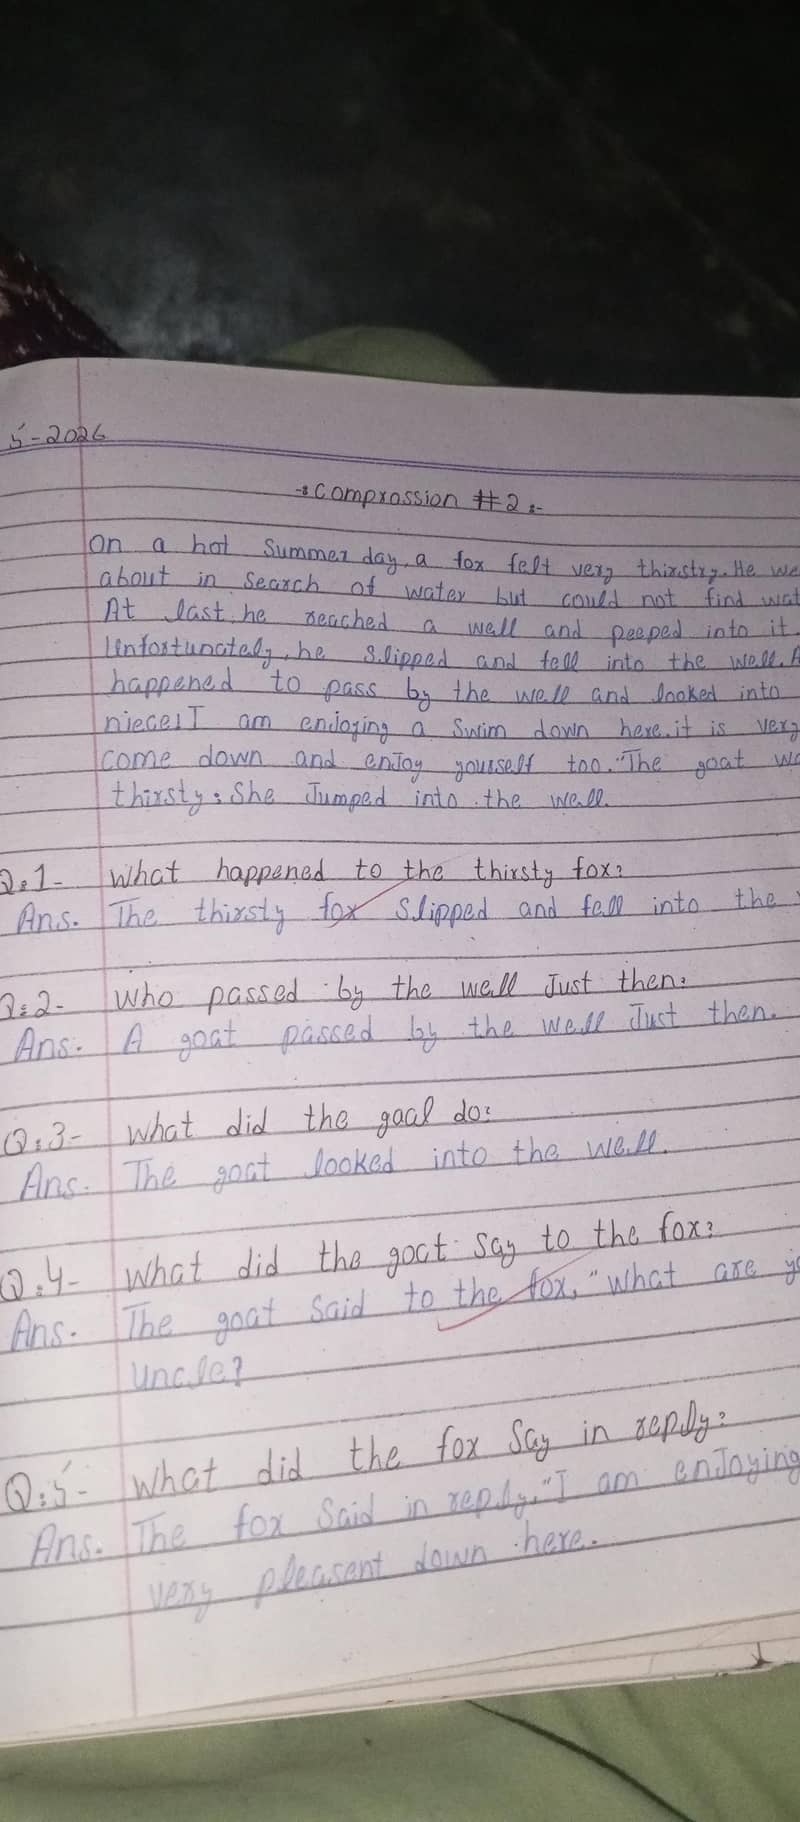 5-2026
-: Comprossion #2 :-
On a hot Summer day, a fox felt very thirstry. He
about in Search of water but could not find
At last, he reached a well and peeped into it.
Unfortunately, he Slipped and fell into the well.
happened to pass by the well and looked into
niece! I am enjoying a Swim down here. it is very
come down and enjoy yourself too." The goat
thirsty: She Jumped into the well.
Q:1- What happened to the thirsty fox?
Ans. The thirsty fox Slipped and fell into the
Q:2- Who passed by the well Just then:
Ans. A goat passed by the well Just then.
Q:3- What did the goal do:
Ans. The goat looked into the well.
Q:4- What did the goat Say to the fox?
Ans. The goat Said to the fox, "What are
Uncle?
Q:5- What did the fox Say in reply?
Ans. The fox Said in reply, "I am enJoying
very pleasent down here.